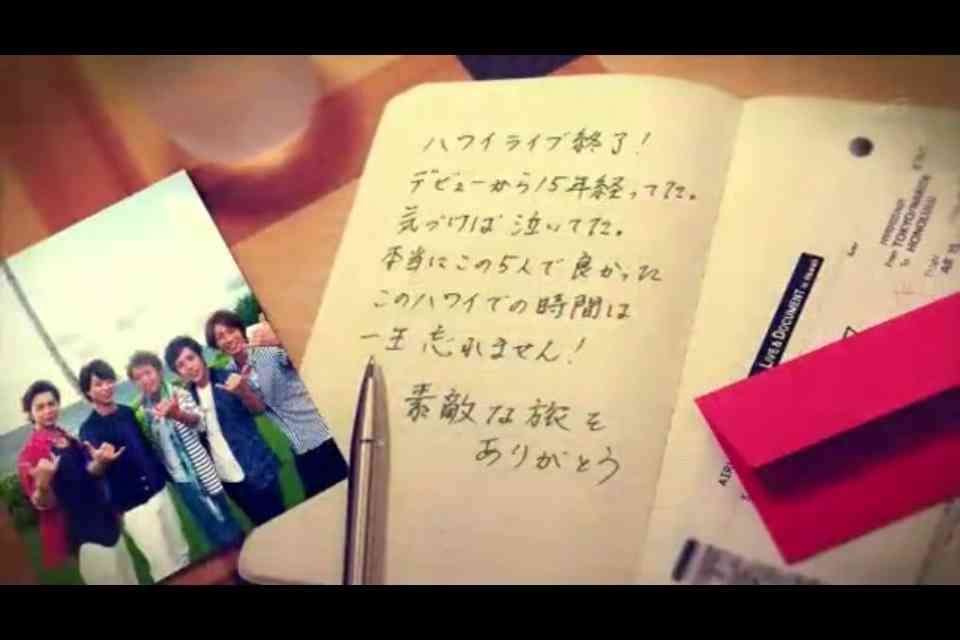 ハワイライブ終了！
デビューから15年経ってた。
気づけば泣いてた。
本当にこの5人で良かった
このハワイでの時間は
一生忘れません！
素敵な旅を
ありがとう
LIVE & DOCUMENT in Hawaii
From TOKYO/HANEDA
To HONOLULU